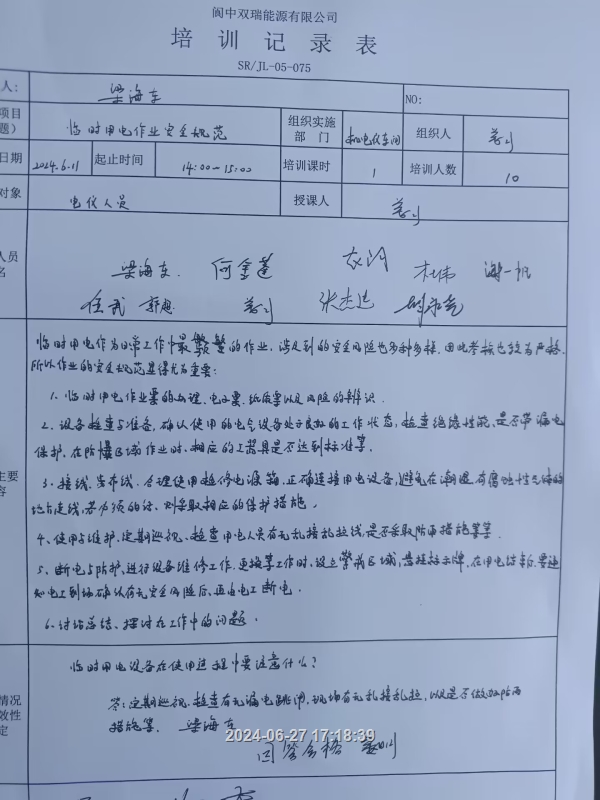 阆中双瑞能源有限公司
培训记录表
SR/JL-05-075
人: 梁海东 NO:
项目 题) 临时用电作业安全规范 组织实施部门 机电仪车间 组织人
日期 2024.6.11 起止时间 14:00-15:00 培训课时 1 培训人数 10
对象 电仪人员 授课人
人员
名
梁海东 何金莲 杜伟 谢一帆
任武 郭想 张杰
临时用电作为日常工作中最繁繁的作业,涉及到的安全风险也多种多样,因此考核也较为严格,
所以作业的安全规范显得尤为重要:
1. 临时用电作业票的办理,电工票,纸质票以及风险的辨识.
2. 设备检查与准备,确认使用的电气设备处于良好的工作状态,检查绝缘性能,是否带漏电
保护,在防爆区域作业时,相应的工器具是否达到标准等.
主要
容
3. 接线与布线,合理使用检修电源箱,正确连接用电设备,避免在潮湿有腐蚀性气体的
地点走线,若必须的话,则采取相应的保护措施.
4. 使用与维护,定期巡视,检查用电人员有无乱接乱拉线,是否采取防雨措施等等.
5. 断电与防护,进行设备维修工作,更换等工作时,设立警戒区域,悬挂标示牌,在用电结束后,要通
知电工到场确认有无安全风险后,再由电工断电.
6. 讨论总结,探讨在工作中的问题.
临时用电设备在使用过程中要注意什么?
情况
效性
定
答:定期巡视,检查有无漏电跳闸,现场有无乱接乱拉,以及是否做好防雨
措施等. 梁海东
2024-06-27 17:18:39
回答合格